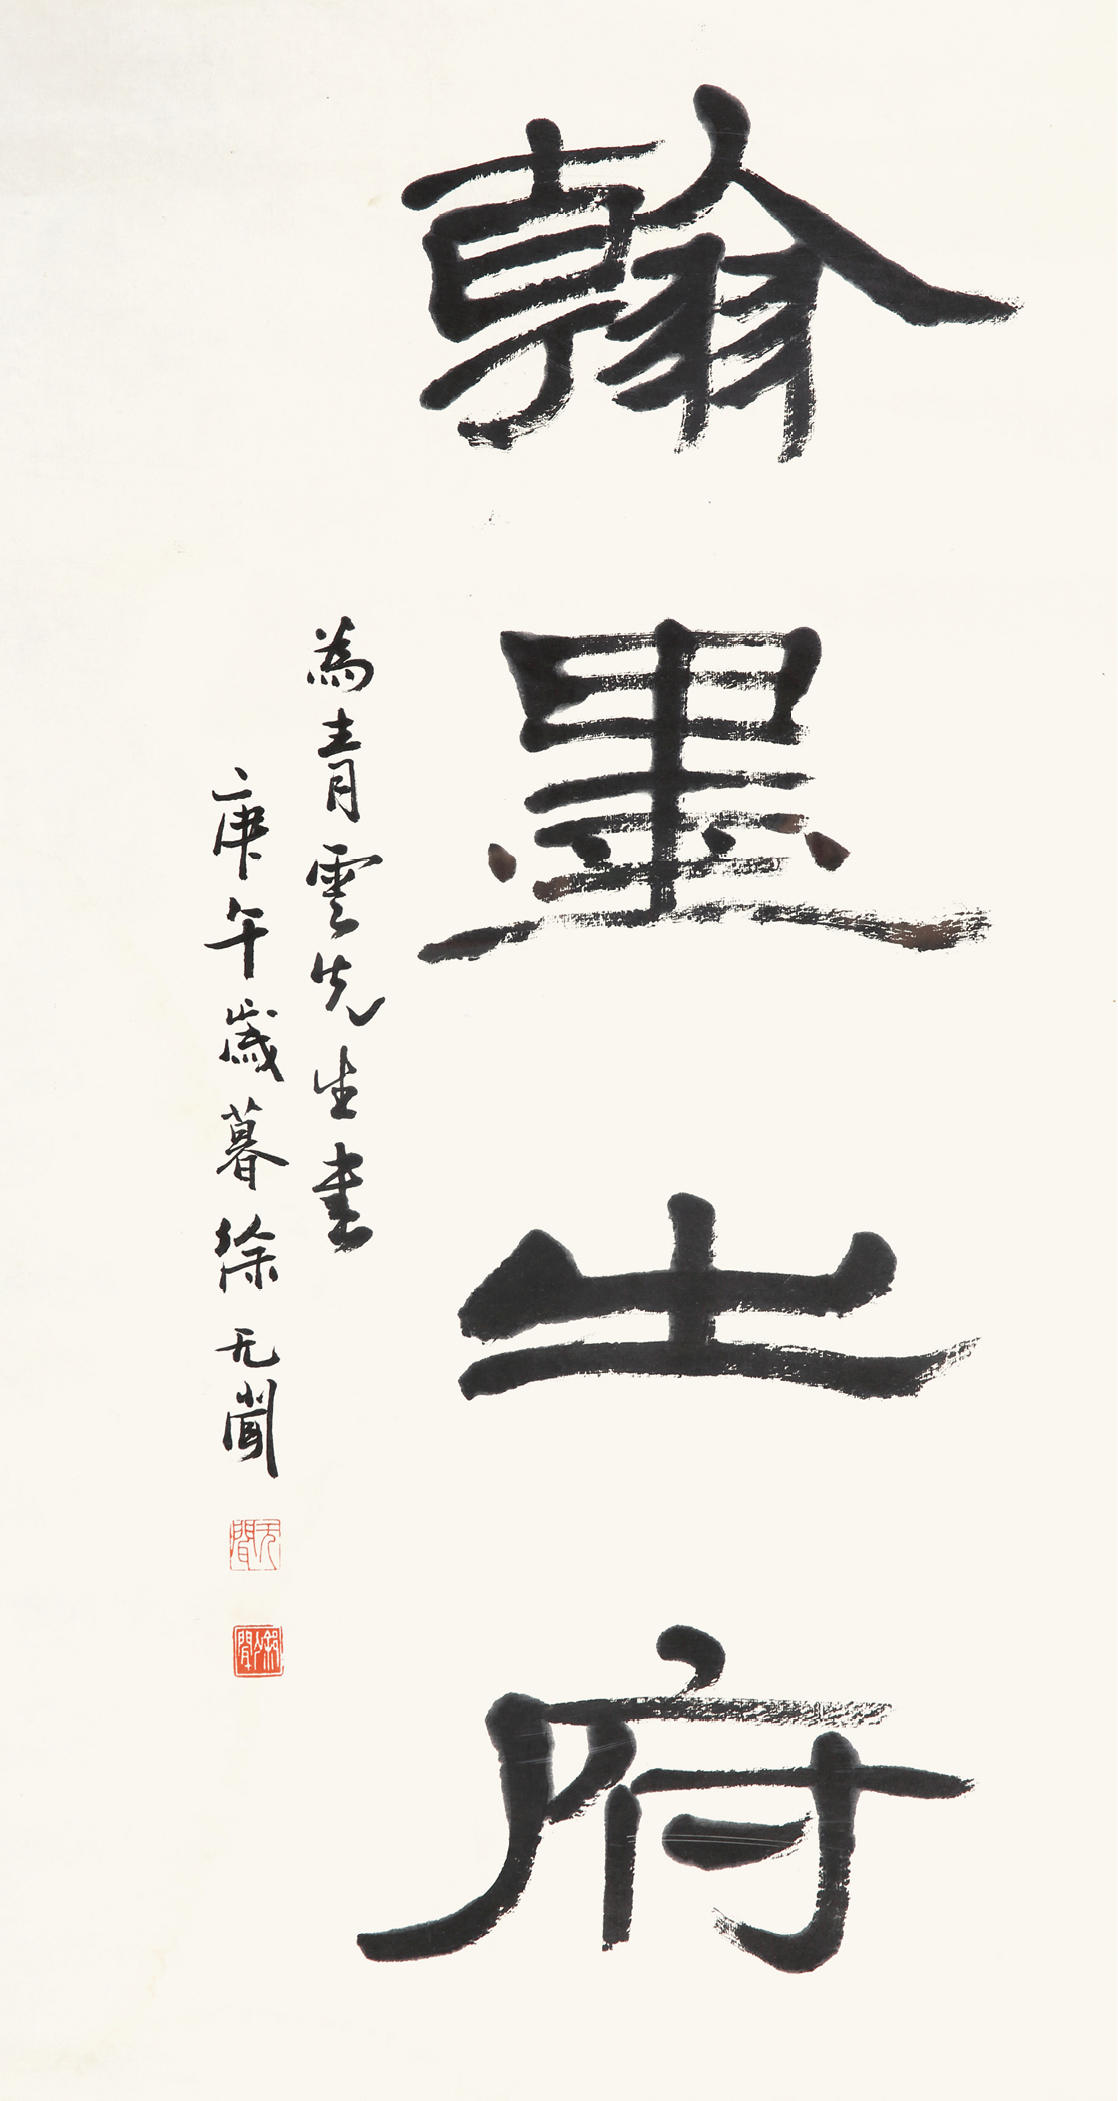 翰墨之府
為青雲先生書
庚午歲暮徐无聞
无聞